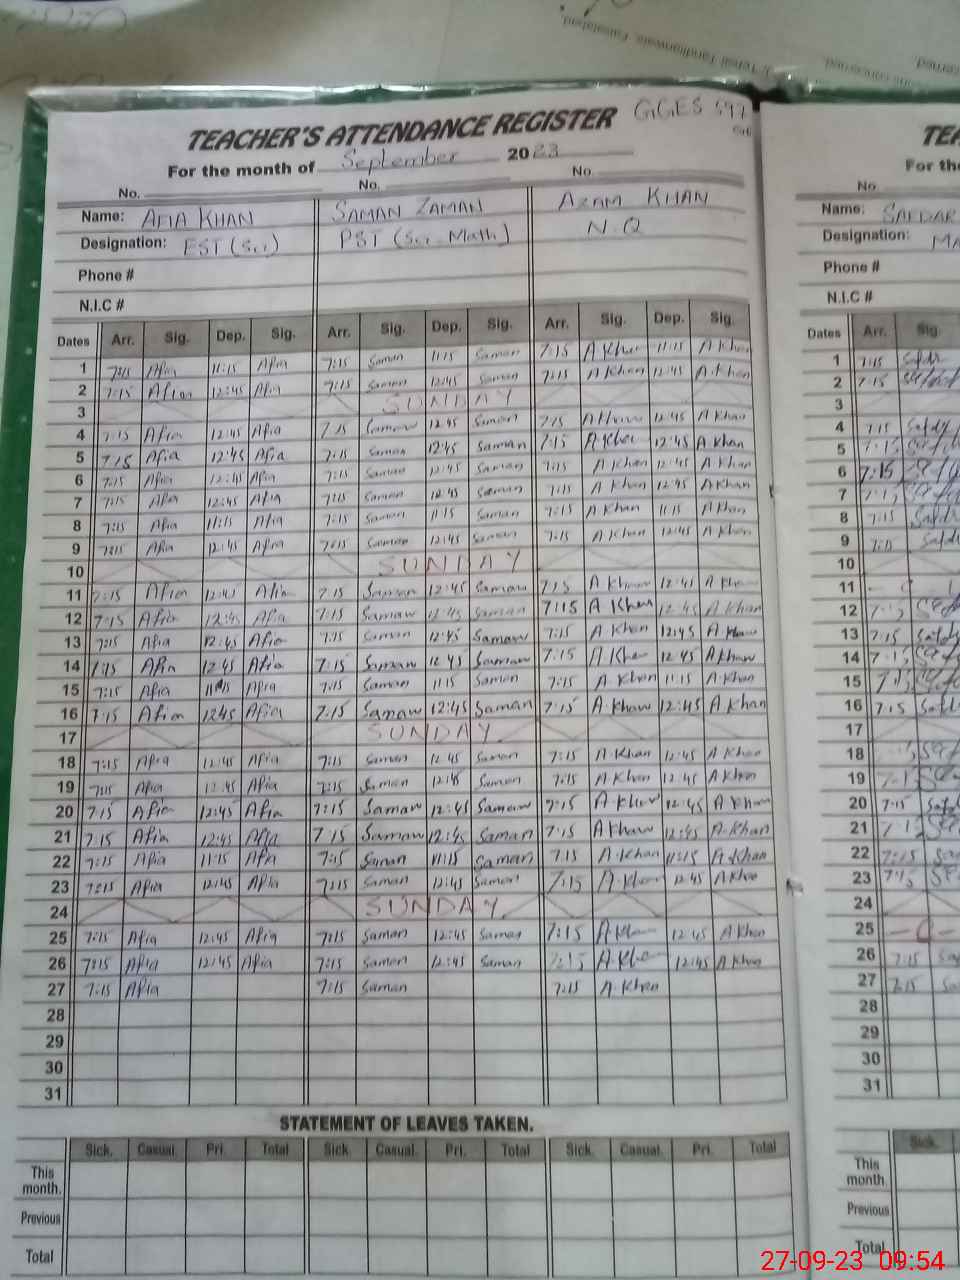 GGES 597
TEACHER'S ATTENDANCE REGISTER
For the month of September 2023
No. No. No.
Name: AFIA KHAN SAMAN ZAMAN AZAM KHAN
Designation: EST (Sci) PST (Sci. Math) N.Q
Phone #
N.I.C #
Dates Arr. Sig. Dep. Sig. Arr. Sig. Dep. Sig. Arr. Sig. Dep. Sig.
1 7:15 Afia 11:15 Afia 7:15 Saman 11:15 Saman 7:15 A Khan 11:15 A Khan
2 7:15 Afia 12:45 Afia 7:15 Saman 12:45 Saman 7:15 A Khan 12:45 A.Khan
3 SUNDAY
4 7:15 Afia 12:45 Afia 7:15 Saman 12:45 Saman 7:15 A Khan 12:45 A Khan
5 7:15 Afia 12:45 Afia 7:15 Saman 12:45 Saman 7:15 A Khan 12:45 A Khan
6 7:15 Afia 12:45 Afia 7:15 Saman 12:45 Saman 7:15 A Khan 12:45 A Khan
7 7:15 Afia 12:45 Afia 7:15 Saman 12:45 Saman 7:15 A Khan 12:45 A Khan
8 7:15 Afia 11:15 Afia 7:15 Saman 11:15 Saman 7:15 A Khan 11:15 A Khan
9 7:15 Afia 12:45 Afia 7:15 Saman 12:45 Saman 7:15 A Khan 12:45 A Khan
10 SUNDAY
11 7:15 Afia 12:45 Afia 7:15 Saman 12:45 Saman 7:15 A Khan 12:45 A Khan
12 7:15 Afia 12:45 Afia 7:15 Saman 12:45 Saman 7:15 A Khan 12:45 A Khan
13 7:15 Afia 12:45 Afia 7:15 Saman 12:45 Saman 7:15 A Khan 12:45 A Khan
14 7:15 Afia 12:45 Afia 7:15 Saman 12:45 Saman 7:15 A Khan 12:45 A Khan
15 7:15 Afia 11:15 Afia 7:15 Saman 11:15 Saman 7:15 A Khan 11:15 A Khan
16 7:15 Afia 12:45 Afia 7:15 Saman 12:45 Saman 7:15 A.Khan 12:45 A Khan
17 SUNDAY
18 7:15 Afia 12:45 Afia 7:15 Saman 12:45 Saman 7:15 A.Khan 12:45 A Khan
19 7:15 Afia 12:45 Afia 7:15 Saman 12:45 Saman 7:15 A Khan 12:45 A Khan
20 7:15 Afia 12:45 Afia 7:15 Saman 12:45 Saman 7:15 A Khan 12:45 A Khan
21 7:15 Afia 12:45 Afia 7:15 Saman 12:45 Saman 7:15 A Khan 12:45 A.Khan
22 7:15 Afia 11:15 Afia 7:15 Saman 11:15 Saman 7:15 A.Khan 11:15 A.Khan
23 7:15 Afia 12:45 Afia 7:15 Saman 12:45 Saman 7:15 A.Khan 12:45 A.Khan
24 SUNDAY
25 7:15 Afia 12:45 Afia 7:15 Saman 12:45 Saman 7:15 A.Khan 12:45 A Khan
26 7:15 Afia 12:45 Afia 7:15 Saman 12:45 Saman 7:15 A.Khan 12:45 A Khan
27 7:15 Afia 7:15 Saman 7:15 A.Khan
28
29
30
31
STATEMENT OF LEAVES TAKEN.
Sick. Casual. Pri. Total Sick. Casual. Pri. Total Sick. Casual. Pri. Total
This month.
Previous
Total
For the
No
Name: SAFDAR
Designation:
Phone #
N.I.C #
Dates Arr. Sig.
1 7:15
2 7:15
3
4 7:15
5 7:15
6 7:15
7
8 7:15
9 7:15
10
11
12
13 7:15
14
15 7:15
16 7:15
17
18
19 7:15
20 7:15
21
22 7:15
23 7:15
24
25
26 7:15
27 7:15
28
29
30
31
Sick.
This month.
Previous
Total
27-09-23 09:54